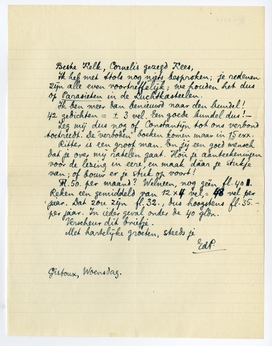 Beste Valk, Cornelis gezegd Kees,
Ik heb met Stols nog niets besproken; je redenen
zijn alle even voortreffelijk; we houden het dus
op Parasieten in de Luchtkasteelen.
Ik ben meer dan benieuwd naar den bundel!
42 gedichten = ± 3 vel. Een goede bundel dus! —
Leg mij dus nog of Constantijn tot ons verbond
toetreedt. De verboden boeken komen maar in 15 ex.
Ritter is een groot man. En jij een goed mensch
dat je over mij praten gaat. Hou je aanteekeningen
voor de lezing in eere, en maak daar je stukje
van; of bouw er je stuk op voort!
Fl. 50. per maand? Welneen, nog geen fl. 40!
Reken een gemiddeld van 12 x 4 vel = 48 vel per
jaar. Dat zou zijn fl. 32., dus hoogstens fl. 35.—
per jaar. In ieder geval onder de 40 gldn.
Verscheur dit briefje.
Met hartelijke groeten, steeds je
EdP.
Gistoux, Woensdag.